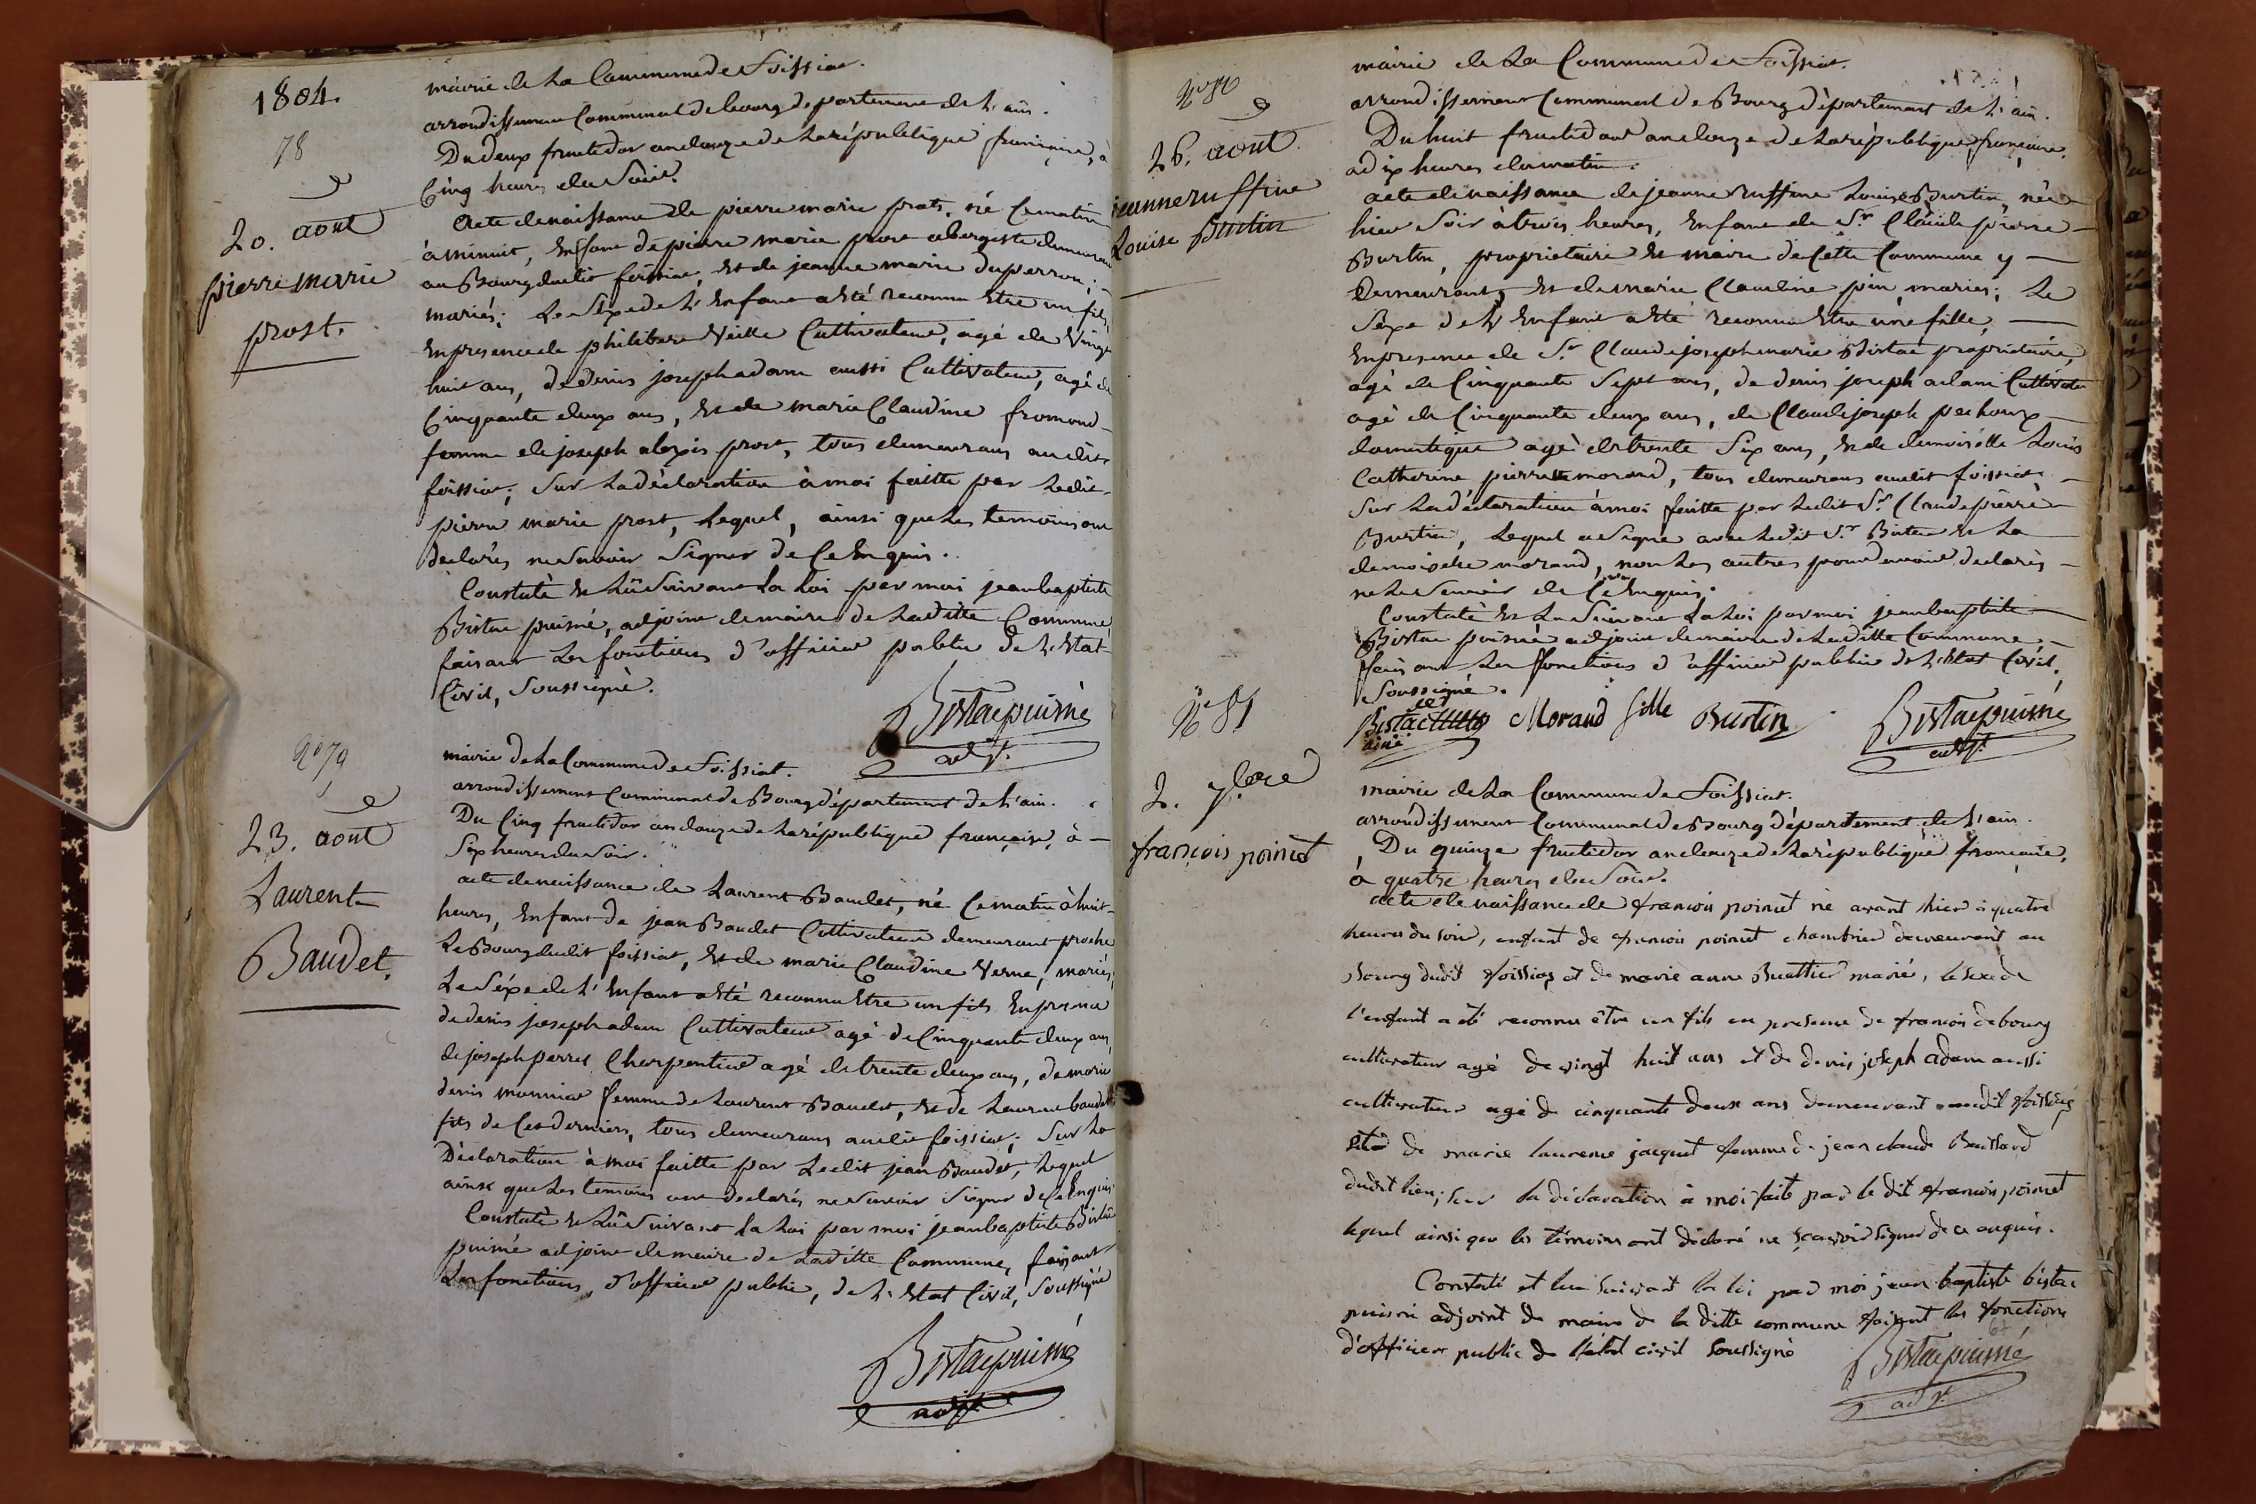 1804.
78
20. aout
pierre marie
prost.
mairie de La Commune de Foissiat.
arrondissement Communal de bourg departement de L'ain.
Du deux fructidor an douze de La république française, à
Cinq heures du Soir.
Acte de naissance de pierre marie prost, né Ce matin
à minuit, Enfant de pierre marie prost abergiste demeurant
au Bourg dudit foissiat, et de jeanne marie duperron,
mariés; Le Séxe de L'Enfant a Eté reconnu Etre un fils,
En presence de philibert Veille Cultivateur, agé de Vingt
huit ans, de denis joseph adam aussi Cultivateur, agé de
Cinquante deux ans, Et de marie Claudine fromond
femme de joseph alexis prost, tous demeurans audit
foissiat; Sur La déclaration à moi faitte par Ledit
pierre marie prost, Lequel, ainsi que Les temoins ont
declarés ne Savoir Signer de Ce Enquis.
Constaté et Lû Suivant La Loi par moi jean baptiste
Bistac puiné, adjoint de maire de Laditte Commune,
faisant Les fonctions d'officier public de L'Etat
Civil, Soussigné.
Bistac puiné
adjt.
No 79
23. aout
Laurent
Baudet.
mairie de La Commune de Foissiat.
arrondissement Communal de Bourg département de L'ain.
Du Cinq fructidor an douze de La république française, à
Six heures du Soir.
acte de naissance de Laurent Baudet, né Ce matin à huit
heures, Enfant de jean Baudet Cultivateur demeurant proche
Le Bourg dudit foissiat, Et de marie Claudine Verne, mariés,
Le Séxe de L'Enfant a Eté reconnu Etre un fils En presence
de denis joseph adam Cultivateur agé de Cinquante deux ans,
de joseph perret Charpentier agé de trente deux ans, de marie
denis monnier femme de Laurent Baudet, Et de Laurent baudet
fils de Ces derniers, tous demeurans audit foissiat; Sur La
Déclaration à moi faitte par Ledit jean Baudet, Lequel
ainsi que Les temoins ont declarés ne Savoir Signer de Ce Enquis.
Constaté et Lû Suivant La Loi par moi jean baptiste Bistac
puiné adjoint de maire de Laditte Commune, faisant
Les fonctions d'officier public, de L'Etat Civil, Soussigné
Bistac puiné
adjt.
No 80
26. aout
jeanne ruffine
Louise Burtin
mairie de La Commune de Foissiat.
arrondissement Communal de Bourg département de L'ain.
Du huit fructidor an douze de La république française,
a dix heures du matin.
acte de naissance de jeanne ruffine Louise Burtin, née
hier Soir à trois heures, Enfant de Sr. Claude pierre
Burtin, propriétaire et maire de Cette Commune y
Demeurant, et de marie Claudine pin, mariés; Le
Séxe de L'Enfant a Eté reconnu Etre une fille,
En presence de Sr. Claude joseph marie Bistac propriétaire,
agé de Cinquante Sept ans, de denis joseph adam Cultivateur
agé de Cinquante deux ans, de Claude joseph pechoux
domestique agé de trente Six ans, et de demoiselle Louis
Catherine pierrette morand, tous demeurans audit foissiat
Sur La déclaration à moi faitte par Ledit Sr. Claude pierre
Burtin, Lequel a Signé avec Ledit Sr. Bistac et La
demoiselle morand, non Les autres pour avoir declarés
ne Le Savoir de Ce Enquis.
Constaté et Lu Suivant La Loi par moi jean baptiste
Bistac puiné adjoint de maire de Laditte Commune
faisant Les fonctions d'officier public de L'Etat Civil,
Soussigné.
Bistac
ainé
Morand fille
Burtin
Bistac puiné
adjt.
No 81
2. 7.bre
françois poincet
mairie de La Commune de Foissiat.
arrondissement Communal de Bourg département de L'ain.
Du quinze fructidor an douze de La république française,
a quatre heures du Soir.
acte de naissance de francois poincet né avant hier à quatre
heures du soir, enfant de francois poincet chambrier demeurant au
bourg dudit foissiat et de marie anne Buattier mariés, le sexe de
l'enfant a été reconnu être un fils en presence de francois debourg
cultivateur agé de vingt huit ans et de denis joseph adam aussi
cultivateur agé de cinquante deux ans demeurant audit foissiat
et de marie laurence jacquet femme de jean claude Baissard
dudit lieu; sur la déclaration à moi faite par le dit francois poincet
lequel ainsi que les témoins ont déclaré ne sçavoir signer de ce enquis.
Constaté et lu suivant la loi par moi jean baptiste bistac
puiné adjoint de maire de la ditte commune faisant les fonctions
d'officier public de l'état civil soussigné
Bistac puiné
adjt.